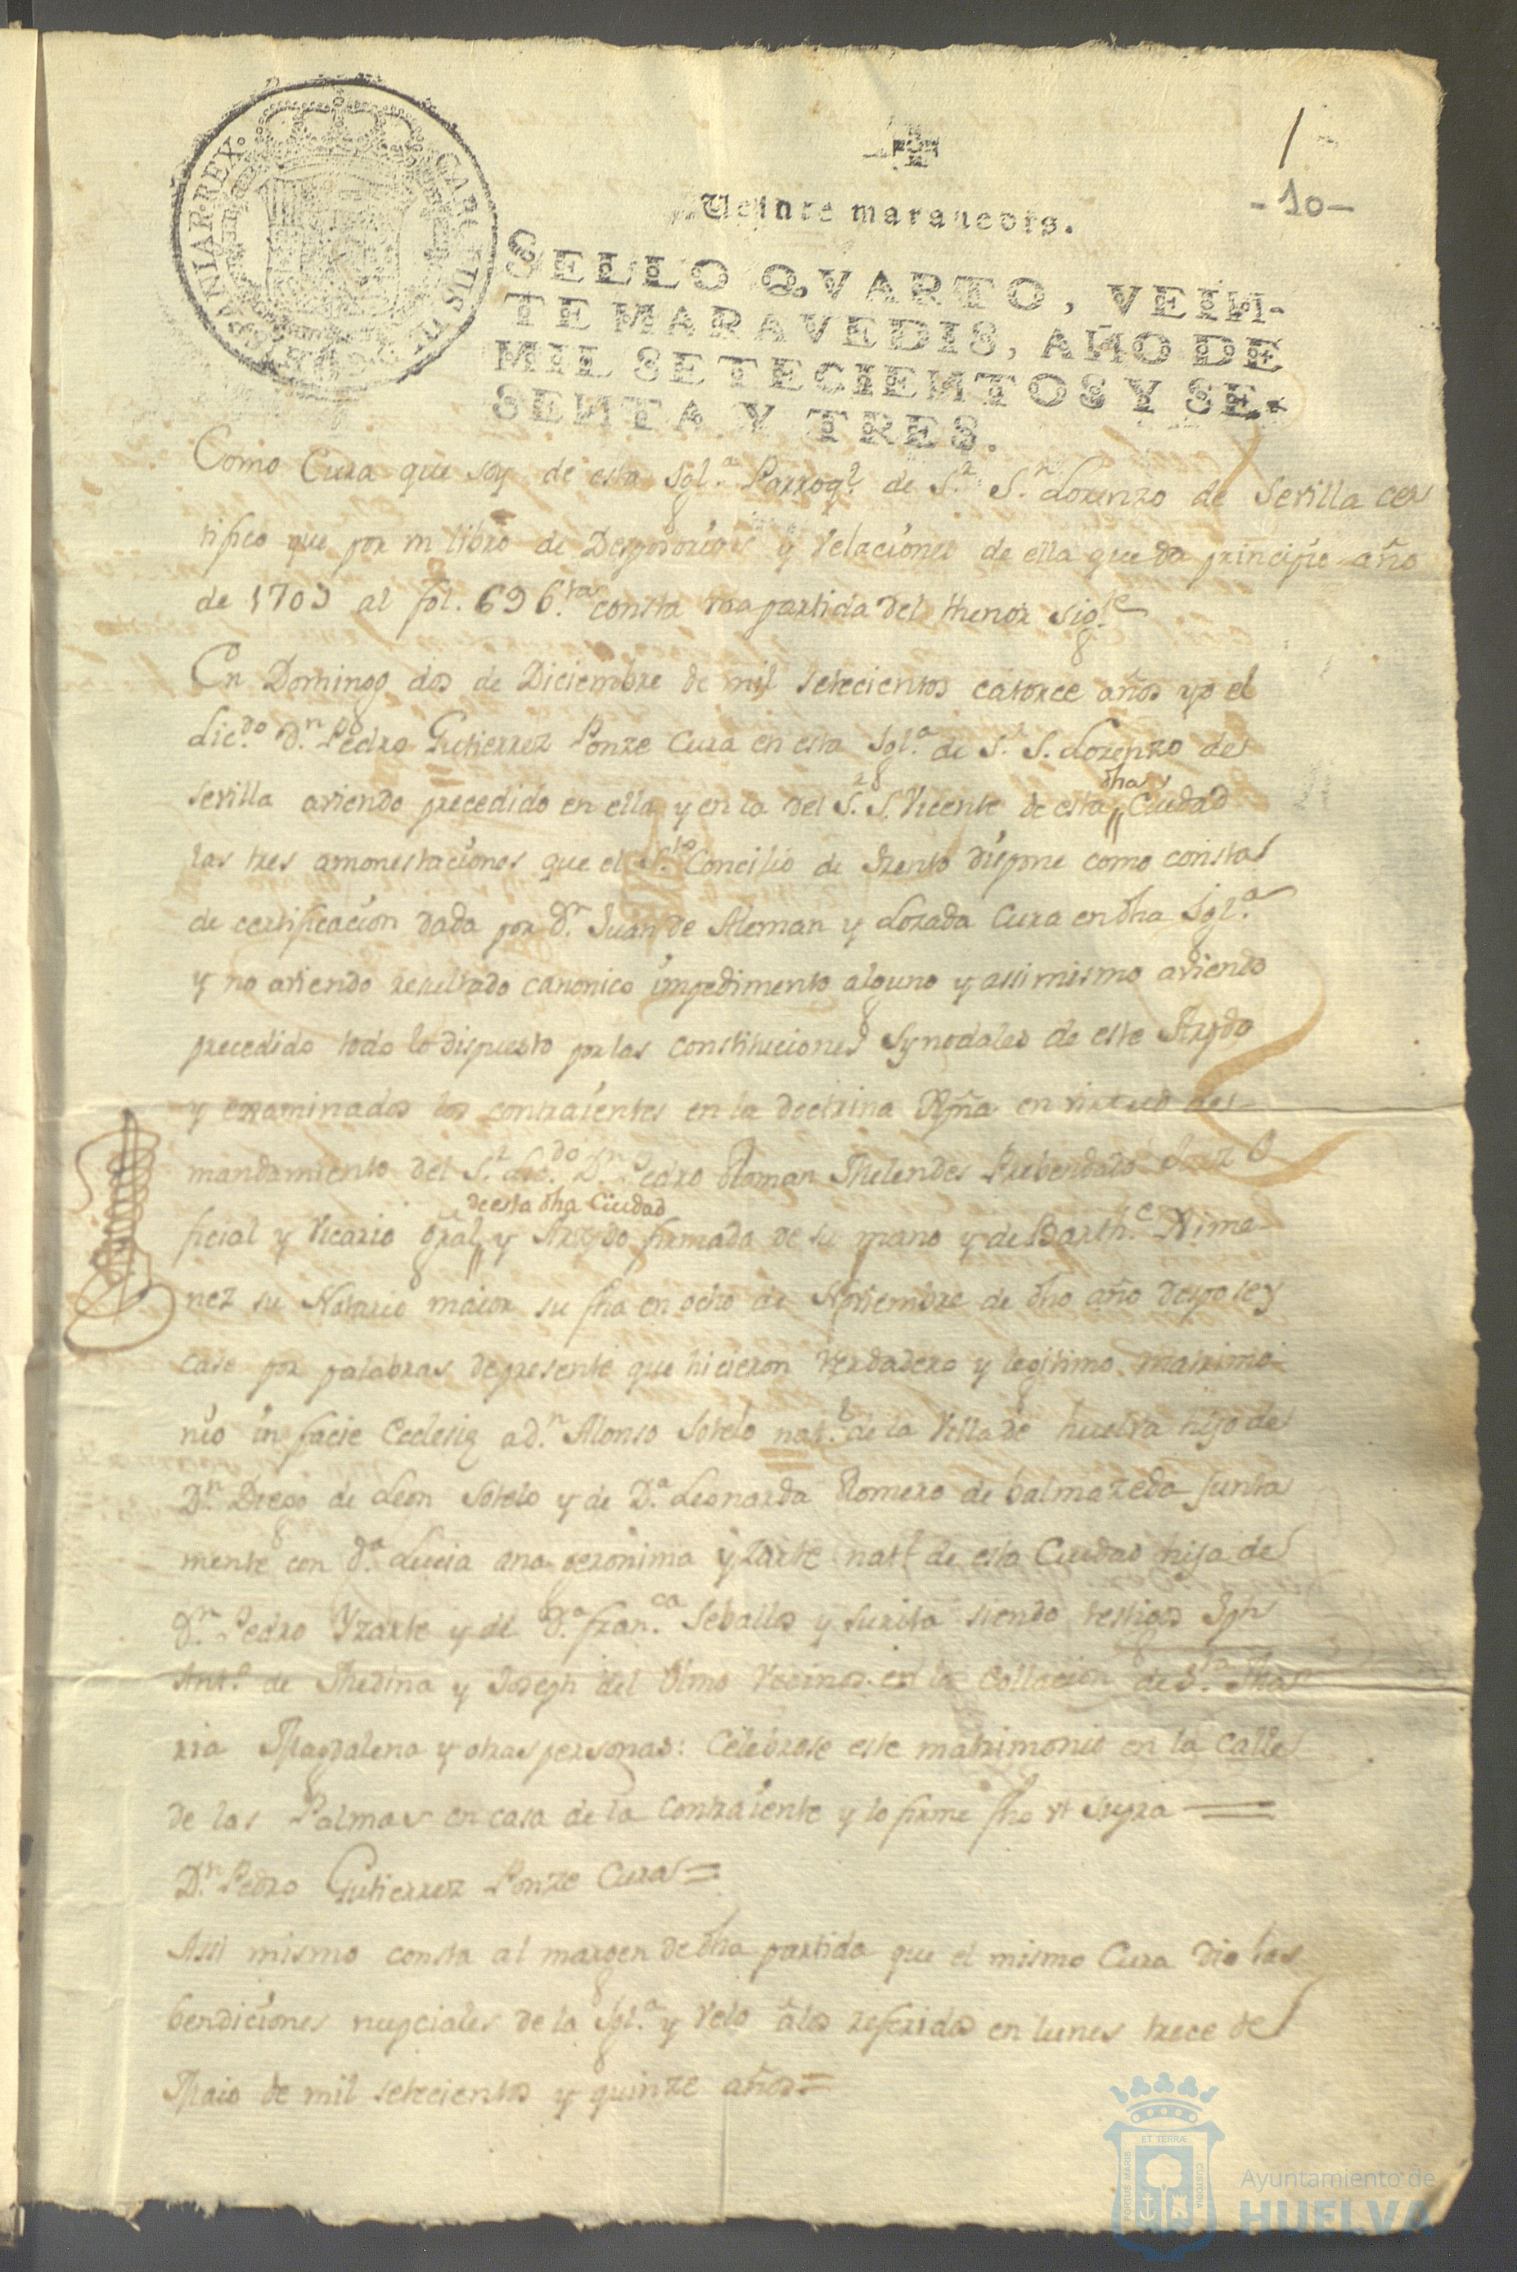 1
-10-
CAROLUS III D G HISPANIAR REX
Veinte maravedis.
SELLO QVARTO, VEIN-
TE MARAVEDIS, AÑO DE
MIL SETECIENTOS Y SE-
SENTA Y TRES.
Como Cura que soy de esta Igl.ª Parroq.l de S.r S.n Lorenzo de Sevilla cer
tifico que por un libro de Desposorios y Velaciones de ella que da principio año
de 1703 al fol. 696 consta una partida del thenor sig.te
En Domingo dos de Diciembre de mil setecientos catorce años yo el
Lic.do D.n Pedro Gutierrez Ponze Cura en esta Igl.ª de S.r S. Lorenzo de
Sevilla aviendo precedido en ella y en la del S.r S. Vicente de esta dha Ciudad
las tres amonestaciones que el S.to Concilio de trento dispone como consta
de certificacion dada por D.n Juan de Aleman y Lozada Cura en dha Igl.ª
y no aviendo resultado canonico impedimento alguno y assi mismo aviendo
precedido todo lo dispuesto por las constituciones Synodales de este Arzpdo
y examinados los contraientes en la doctrina Xpña en virtud de
mandamiento del S.r Lic.do D.n Pedro Roman Melendes Prebendado Juez O
ficial y Vicario Gral de esta dha Ciudad y Arzpdo firmada de su mano y de Barth.e Xime
nez su Notario maior su fha en ocho de Noviembre de dho año despose y
case por palabras de presente que hicieron verdadero y legitimo matrimo
nio in facie Eclesię a d.n Alonso Sotelo nat.l de la Villa de huelva hijo de
D.n Diego de Leon Sotelo y de D.ª Leonarda Romero de balmazeda junta
mente con d.ª Lucia ana geronima yzarte nat.l de esta Ciudad hija de
d.n Pedro Yzarte y de D.ª fran.ca Seballos y surita siendo testigos Jph
Ant.º de Medina y Joseph del Olmo Vecinos en la Collacion de S.ta Ma
ria Magdalena y otras personas: Celebrose este matrimonio en la calle
de las Palmas en casa de la contraiente y lo firme fho ut supra =
D.n Pedro Gutierrez Ponze Cura =
Assi mismo consta al margen de dha partida que el mismo Cura dio las
bendiciones nupciales de la Igl.ª y velo a los referidos en lunes trece de
Maio de mil setecientos y quinze años =
PORTUS MARIS ET TERRÆ CUSTODIA
Ayuntamiento de
HUELVA